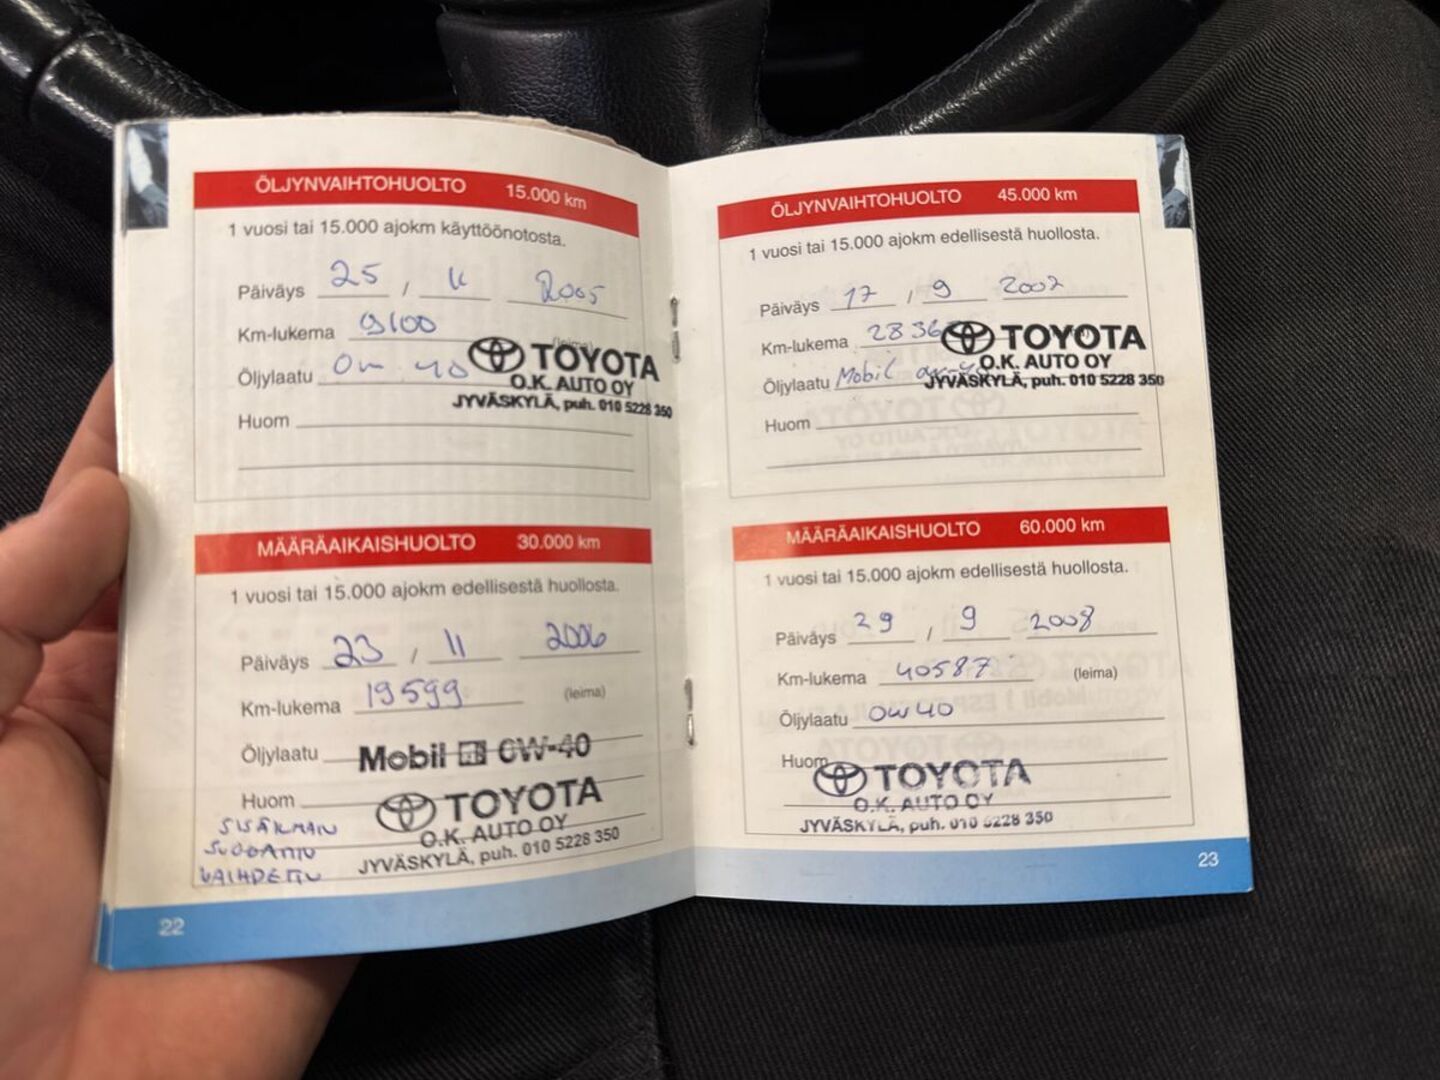 ÖLJYNVAIHTOHUOLTO 15.000 km
1 vuosi tai 15.000 ajokm käyttöönotosta.
Päiväys 25 / 11 2005
Km-lukema 9100
Öljylaatu 0w 40
TOYOTA
O.K. AUTO OY
JYVÄSKYLÄ, puh. 010 5228 350
Huom
MÄÄRÄAIKAISHUOLTO 30.000 km
1 vuosi tai 15.000 ajokm edellisestä huollosta.
Päiväys 23 / 11 2006
Km-lukema 19599 (leima)
Öljylaatu Mobil 1 0W-40
Huom
TOYOTA
O.K. AUTO OY
JYVÄSKYLÄ, puh. 010 5228 350
SISÄILMAN
SUODATIN
VAIHDETTU
22
ÖLJYNVAIHTOHUOLTO 45.000 km
1 vuosi tai 15.000 ajokm edellisestä huollosta.
Päiväys 17 / 9 2007
Km-lukema 2836
Öljylaatu Mobil
TOYOTA
O.K. AUTO OY
JYVÄSKYLÄ, puh. 010 5228 350
Huom
MÄÄRÄAIKAISHUOLTO 60.000 km
1 vuosi tai 15.000 ajokm edellisestä huollosta.
Päiväys 29 / 9 2008
Km-lukema 40587 (leima)
Öljylaatu 0W40
Huom
TOYOTA
O.K. AUTO OY
JYVÄSKYLÄ, puh. 010 5228 350
23